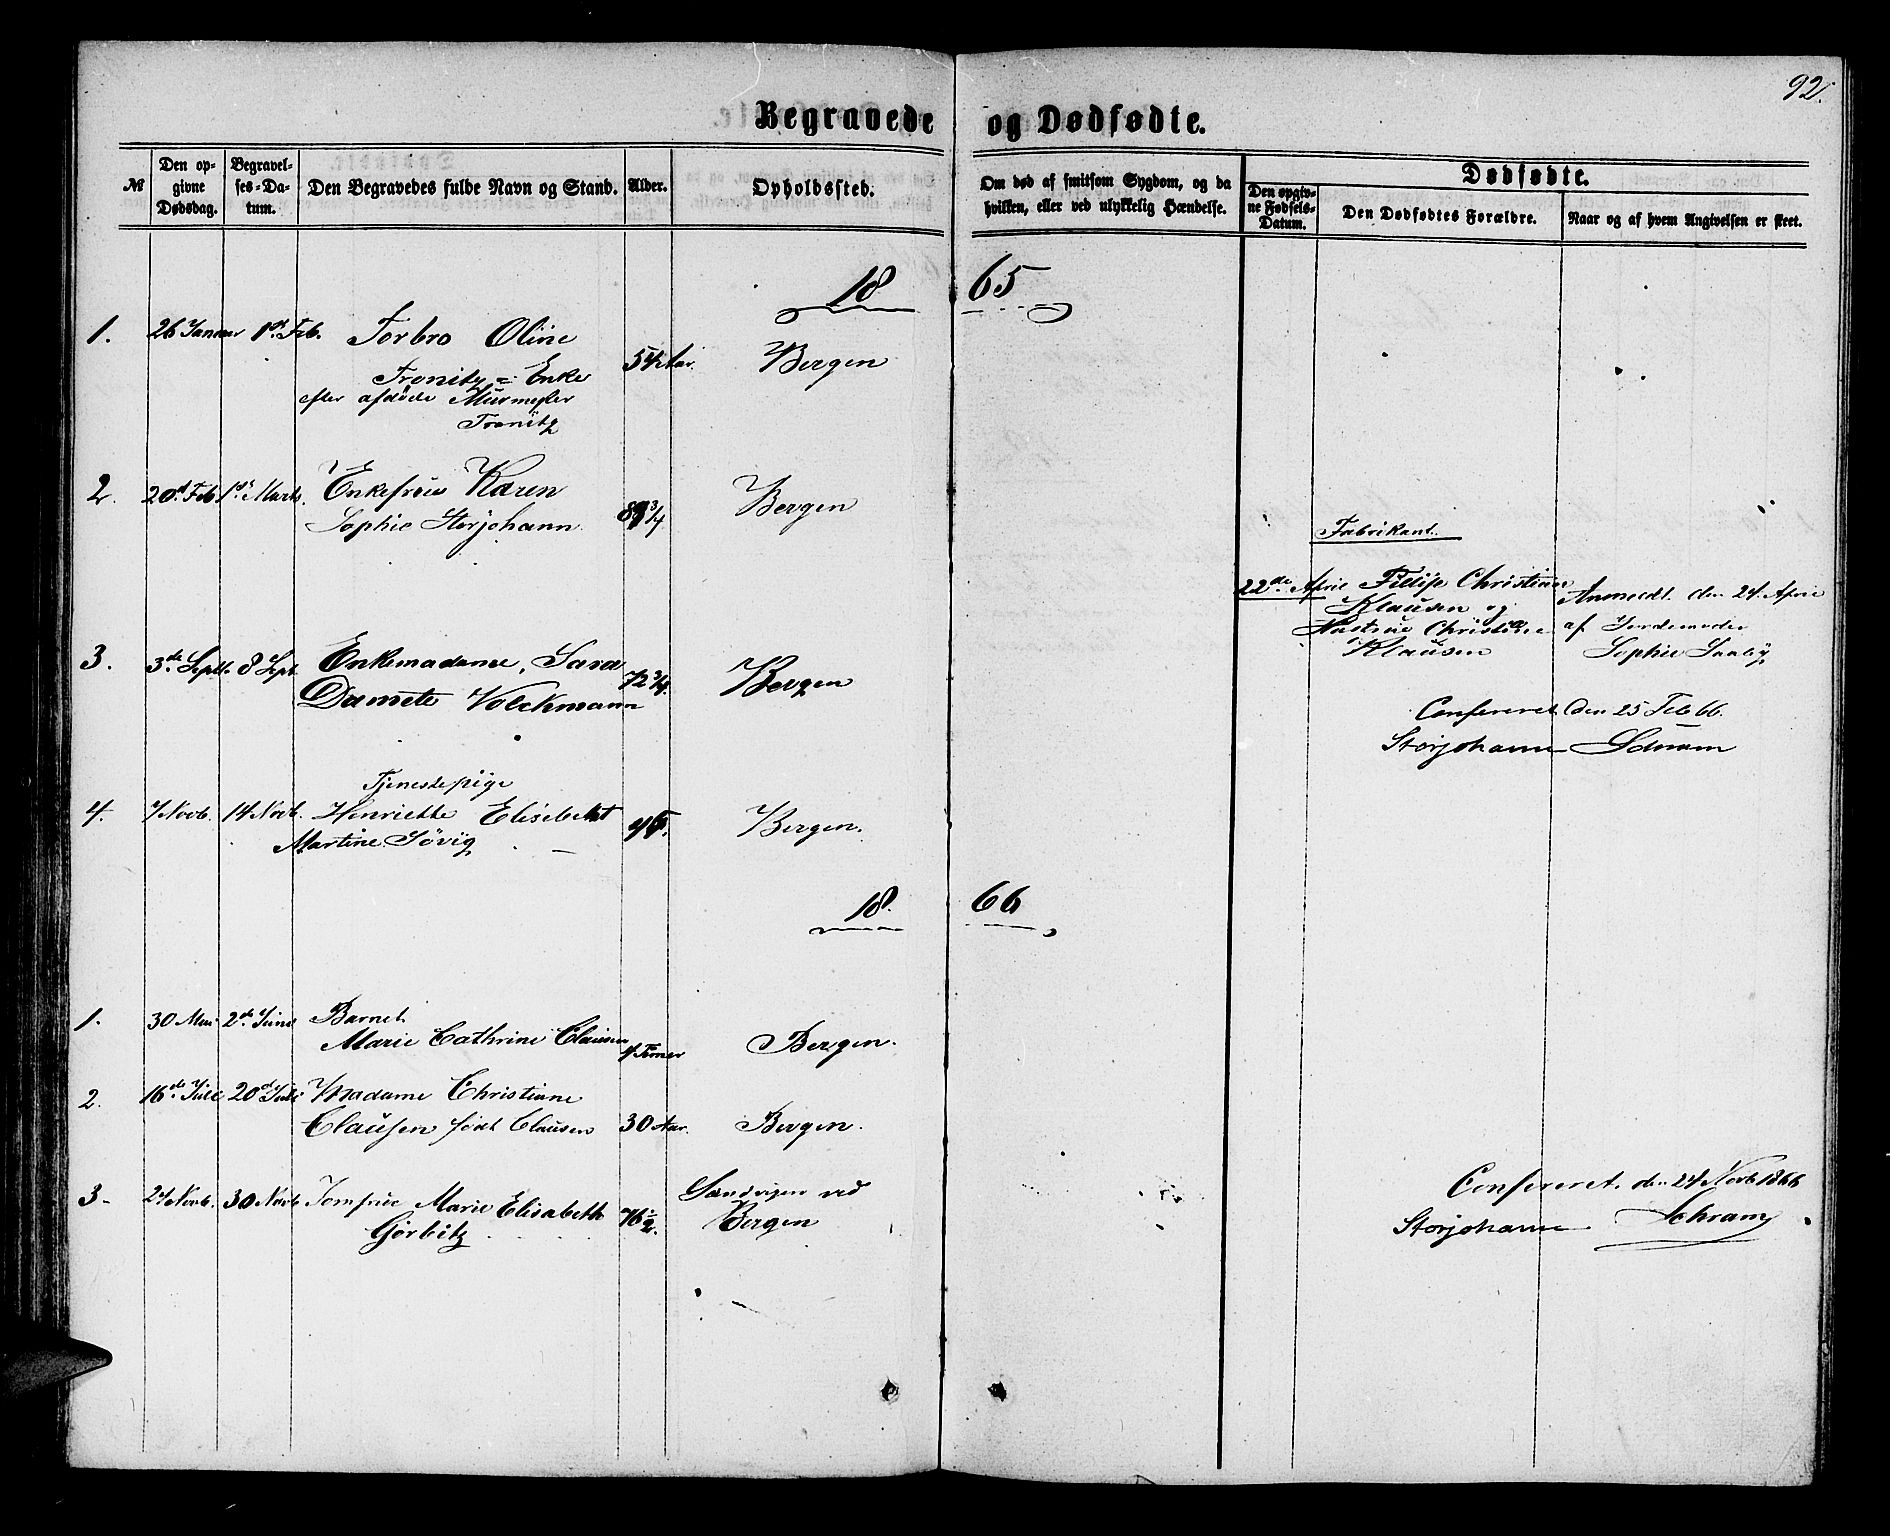 92.
Begravede og Dødfødte.
№
Den opgivne Dødsdag.
Begravelses-Datum.
Den Begravedes fulde Navn og Stand.
Alder.
Opholdssted.
Om død af smitsom Sygdom, og da hvilken, eller ved ulykkelig Hændelse.
Dødfødte.
Den opgivne Fødsels-Datum.
Den Dødfødtes Forældre.
Naar og af hvem Angivelsen er skeet.
18 65
1. 26 Januar 1ste Feb. Torbro Oline
Tronitz = Enke
efter afdøde Murmester
Tronitz
54½ Aar. Bergen
2. 20de Feb 1ste Marts. Enkefrue Karen
Sophie Storjohann. 3/4 Bergen
Fabrikant.
22de April Filip Christian
Klausen og
Hustrue Christine
Klausen
Anmeldt den 24 April
af Jordemoder
Sophie Saaby
3. 3de Septb. 8 Sept. Enkemadame, Sara
Damete Volckmann
72 3/4. Bergen
Confereret den 25 Feb 66.
Storjohann Schram
Tjenestepige
4. 7 Novb. 14 Novb. Henriette Elisebeht
Martine Søvig
Bergen.
18. 66
1. 30 Mai 2den Juni Barnet
Marie Cathrine Clausen
4 Timer Bergen.
2. 16de Juli 20de Juli Madame Christiane
Clausen født Clausen 30 Aar. Bergen.
3- Novb. 30 Novb. Jomfrue Marie Elisabeth
Görbitz
76½. Sandvigen ved
Bergen
Confereret. den 24 Novb 1866
Storjohann Schram